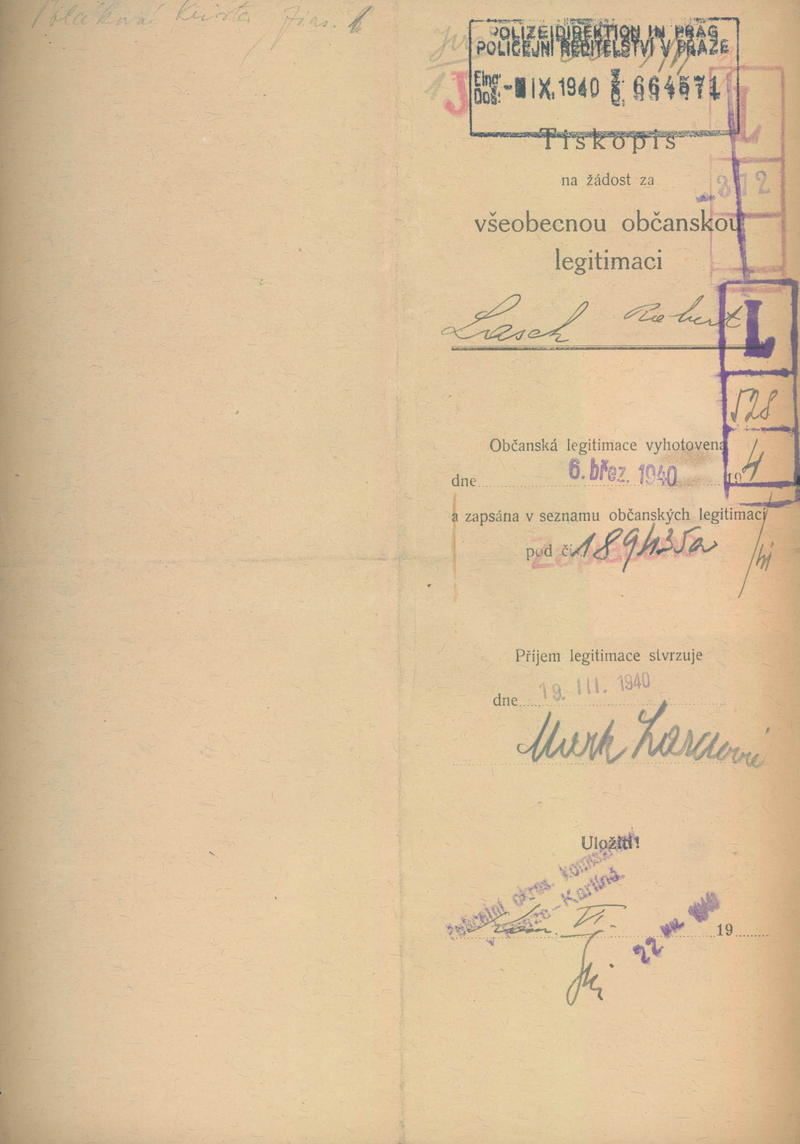 POLIZEIDIREKTION IN PRAG
POLICEJNÍ ŘEDITELSTVÍ V PRAZE
Eing. Doš: IX. 1940 664571
J
Tiskopis
L
na žádost za
372
všeobecnou občanskou
legitimaci
Lasch Robert
L
528
Občanská legitimace vyhotovena
4
dne 6. břez. 1940 19
a zapsána v seznamu občanských legitimací
pod čís. 189435a
Zaplaceno
Příjem legitimace stvrzuje
dne 19. III. 1940
Uložiti!
Policejní okres. komisařství
v Praze-Karlíně.
VI.
19
22 1940